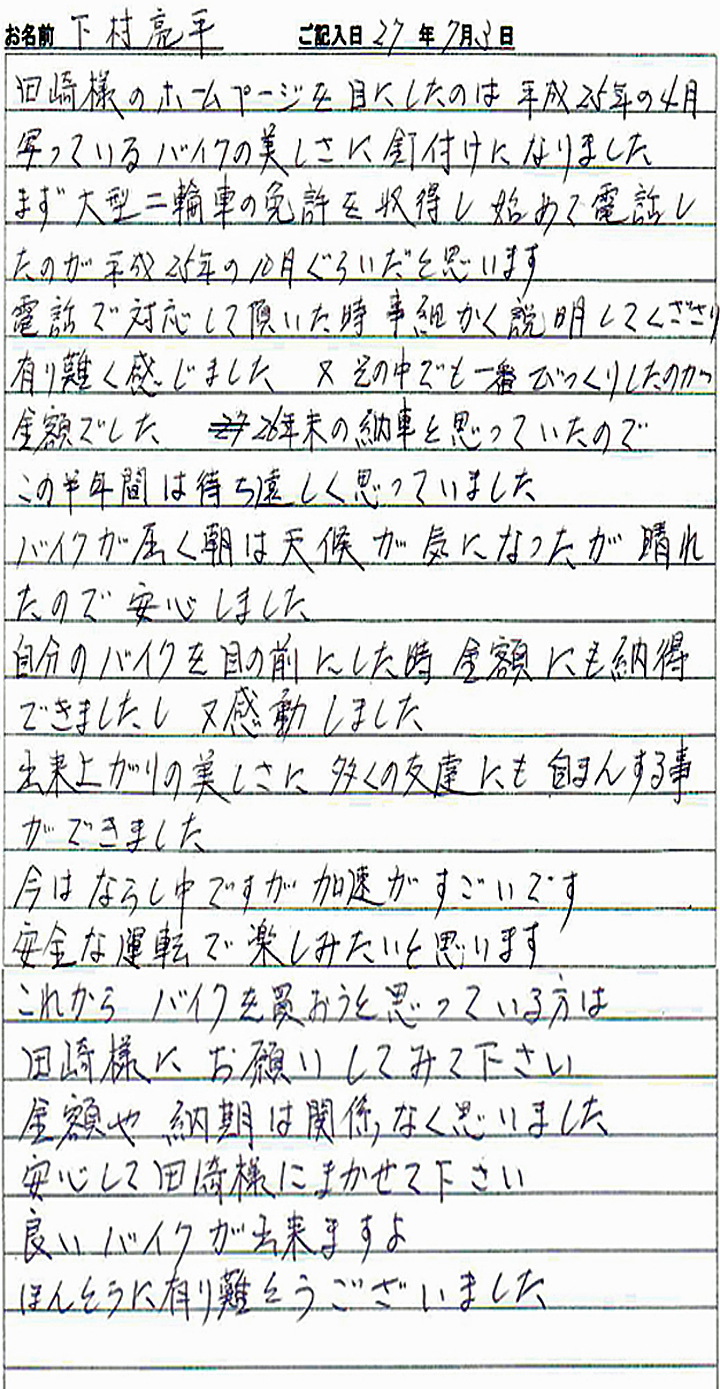 お名前 下村亮平 ご記入日 27 年 7月3日
田崎様のホームページを目にしたのは 平成25年の4月
写っているバイクの美しさに釘付けになりました
まず大型二輪車の免許を収得し 始めて電話し
たのが平成25年の10月ぐらいだと思います
電話で対応して頂いた時事細かく説明してくださり
有り難く感じました 又その中でも一番びっくりしたのが
金額でした 27 26年末の納車と思っていたので
この半年間は待ち遠しく思っていました
バイクが届く朝は天候が気になったが 晴れ
たので安心しました
自分のバイクを目の前にした時 金額にも納得
できましたし 又感動しました
出来上がりの美しさに 多くの友達にも自まんする事
ができました
今はならし中ですが加速がすごいです
安全な運転で楽しみたいと思います
これから バイクを買おうと思っている方は
田崎様に お願いしてみて下さい
金額や 納期は関係なく思いました
安心して田崎様にまかせて下さい
良いバイクが出来ますよ
ほんとうに有り難とうございました